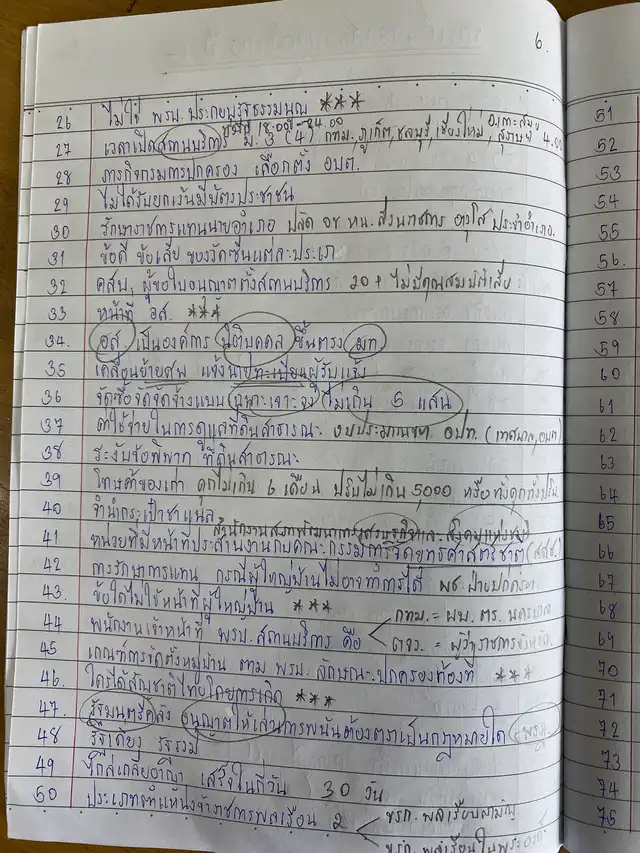 6.
26 ไม่ใช่ พรบ. ประกอบรัฐธรรมนูญ ***
27 เวลาเปิดสถานบริการ ม. 3 (4) กทม. ภูเก็ต, ชลบุรี, เชียงใหม่, 4.00
28 ภารกิจกรมการปกครอง เลือกตั้ง อบต.
29 ไม่ได้รับยกเว้นมีบัตรประชาชน
30 รักษาราชการแทนนายอำเภอ ปลัด อข หน. ส่วนราชการ อาวุโส ประจำอำเภอ.
31 ข้อดี ข้อเสีย ของวัคซีนแต่ละประเภ
32 คสบ. ผู้ขอใบอนุญาตตั้งสถานบริการ 20+ ไม่มีคุณสมบัติเสีย
33 หน้าที่ อส. ***
34. อส เป็นองค์การ นิติบุคคล ขึ้นตรง มท.
35 เคลื่อนย้ายศพ แจ้งนายทะเบียนผู้รับแจ้ง
36 จัดซื้อจัดจ้างแบบ เฉพาะเจาะจง ไม่เกิน 5 แสน
37 ค่าใช้จ่ายในการดูแลที่ดินสาธารณะ งบประมาณของ อปท. (เทศบาล, อบต)
38 ระงับข้อพิพาท ที่ดินสาธารณะ
39 โทษค้าของเก่า คุกไม่เกิน 6 เดือน ปรับไม่เกิน 5,000 หรือทั้งคุกทั้งปรับ
40 จำนำกระเป๋าชาแนล
สำนักงานสภาพัฒนาการเศรษฐกิจและสังคมแห่งชาติ
41 หน่วยที่มีหน้าที่ประสานงานกับคณะกรรมการจัดยุทธศาสตร์ชาติ (สศช.)
42 การรักษาการแทน กรณีผู้ใหญ่บ้านไม่อาจทำการได้ ผช. ฝ่ายปกครอง
43. ข้อใดไม่ใช่หน้าที่ผู้ใหญ่บ้าน ***
44 พนักงานเจ้าหน้าที่ พรบ. สถานบริการ คือ กทม. = ผบ. ตร. นครบาล
ตจว. = ผู้ว่าราชการจังหวัด
45 เกณฑ์การจัดตั้งหมู่บ้าน ตาม พรบ. ลักษณะปกครองท้องที่ ***
46. ใครได้สัญชาติไทยโดยการเกิด ***
47. รัฐมนตรีคลัง อนุญาตให้เล่นการพนันต้องตราเป็นกฎหมายใด
48 รัฐเดี่ยว รัฐรวม
49 ไกล่เกลี่ยอาญา เสร็จในกี่วัน 30 วัน
50 ประเภทตำแหน่งข้าราชการพลเรือน 2 ขรก. พลเรือนสามัญ
ขรก. พลเรือนในพระองค์
51
52
53
54
55
56.
57
58
59
60
61
62
63
64
65
66
67
68
69
70
71
72
73
74
75